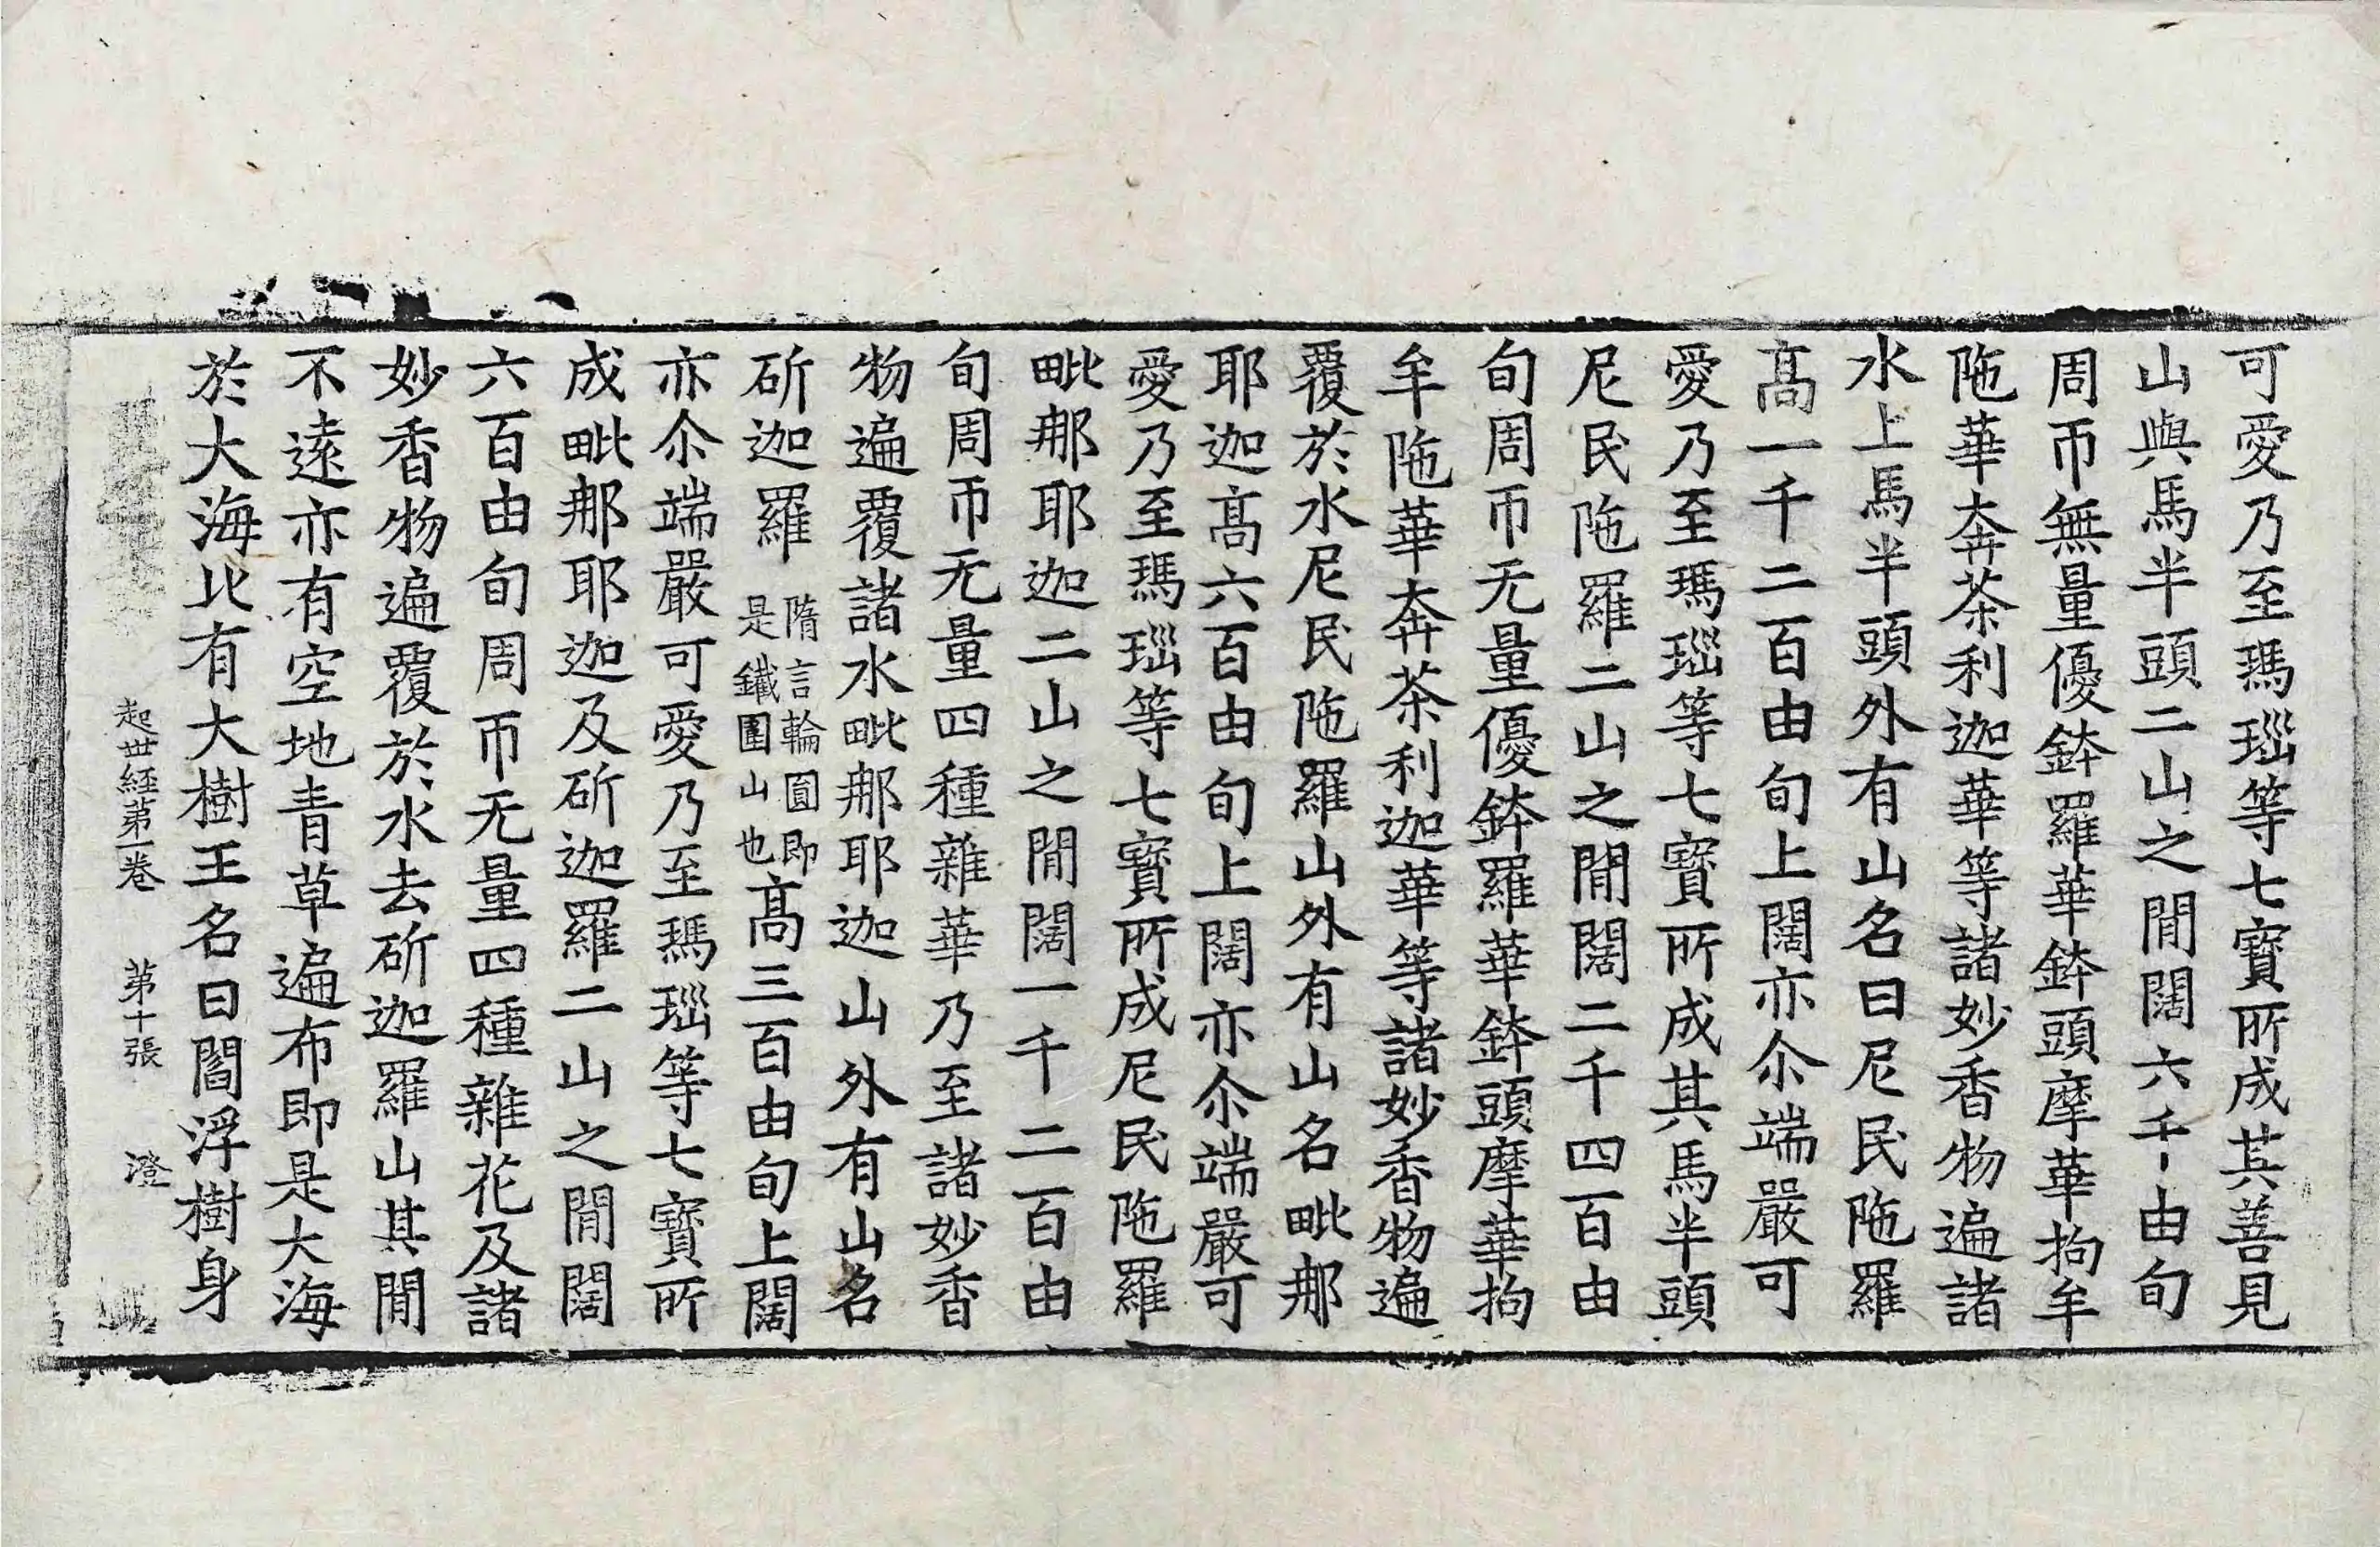 可愛乃至瑪瑙等七寶所成其善見
山與馬半頭二山之閒闊六千由旬
周帀無量優鉢羅華鉢頭摩華拘牟
陁華奔茶利迦華等諸妙香物遍諸
水上馬半頭外有山名曰尼民陁羅
髙一千二百由旬上闊亦尒端嚴可
愛乃至瑪瑙等七寶所成其馬半頭
尼民陁羅二山之閒闊二千四百由
旬周帀无量優鉢羅華鉢頭摩華拘
牟陁華奔茶利迦華等諸妙香物遍
覆於水尼民陁羅山外有山名毗那
耶迦髙六百由旬上闊亦尒端嚴可
愛乃至瑪瑙等七寶所成尼民陁羅
毗那耶迦二山之閒闊一千二百由
旬周帀无量四種雜華乃至諸妙香
物遍覆諸水毗那耶迦山外有山名
斫迦羅隋言輪圓即是鐵圍山也髙三百由旬上闊
亦尒端嚴可愛乃至瑪瑙等七寶所
成毗那耶迦及斫迦羅二山之閒闊
六百由旬周帀无量四種雜花及諸
妙香物遍覆於水去斫迦羅山其閒
不遠亦有空地青草遍布即是大海
於大海北有大樹王名曰閻浮樹身
起世経第一卷 第十張 澄